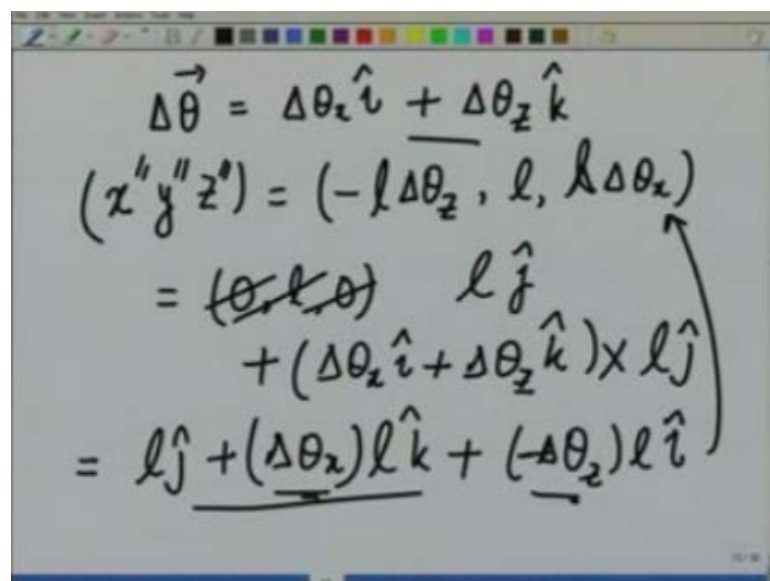 Δθ⃗ = Δθₓ î + Δθ_z k̂
(x'' y'' z'') = (-lΔθ_z, l, lΔθₓ)
= (0, l, 0) l ĵ
+ (Δθₓ î + Δθ_z k̂) × l ĵ
= l ĵ + (Δθₓ) l k̂ + (-Δθ_z) l î